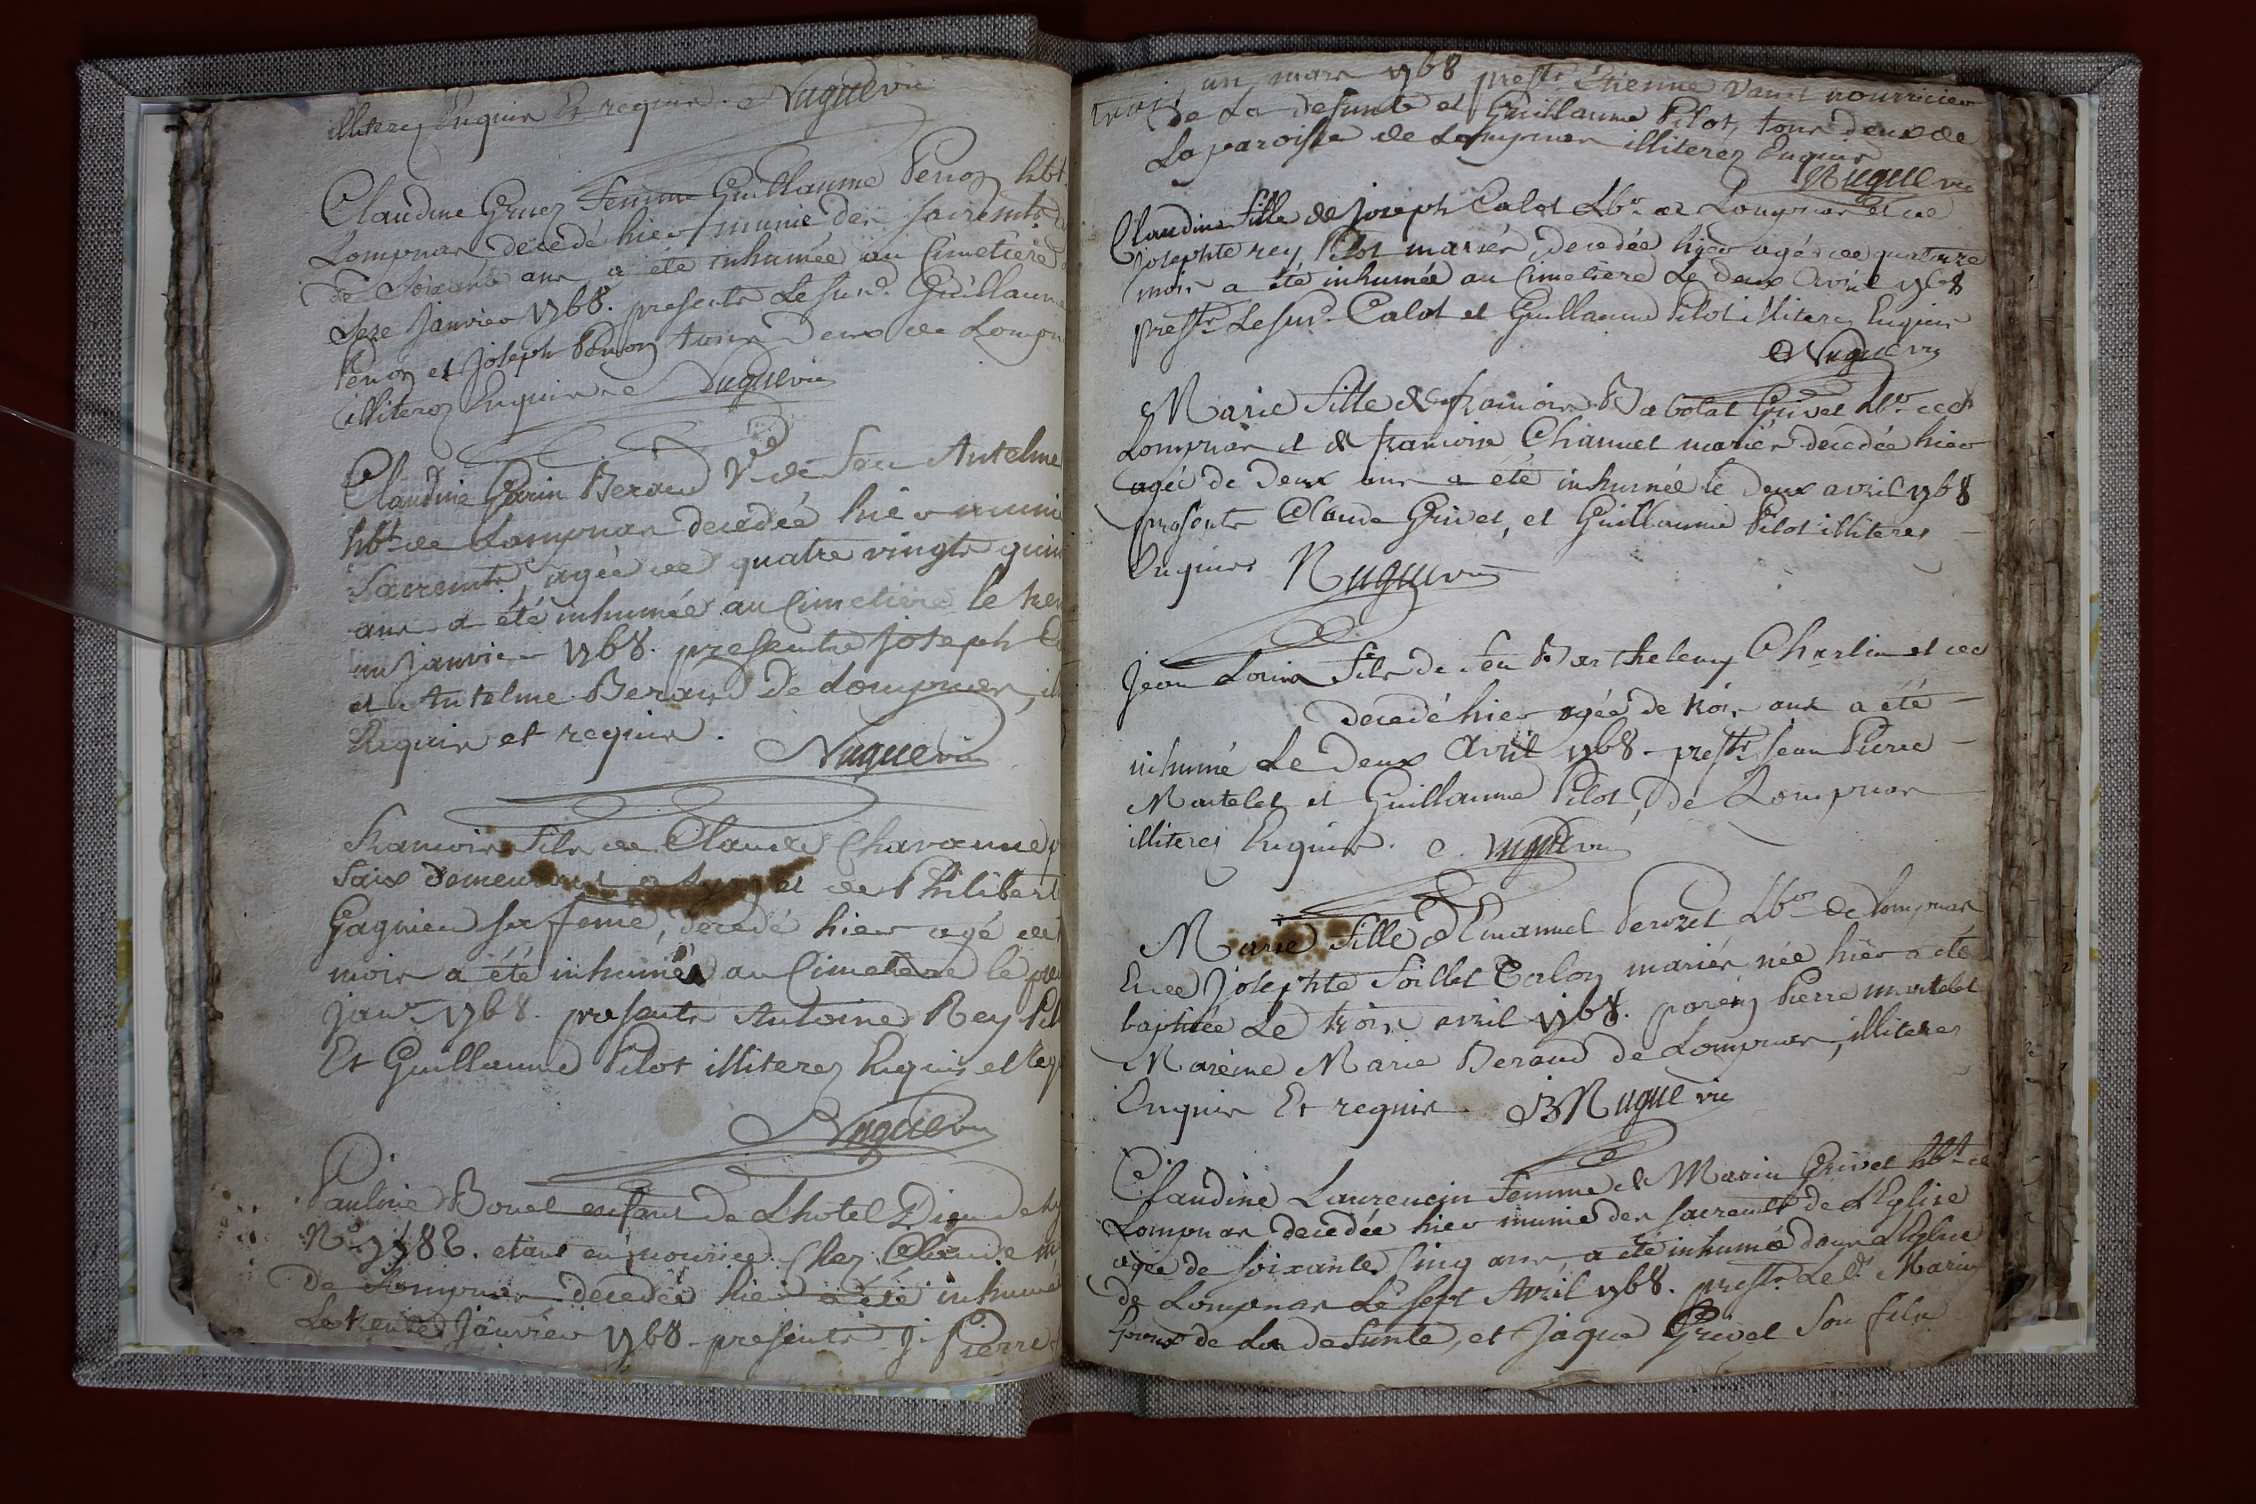 illiterez Enquis Et requis. Nugue vic
Claudine Gruez femme Guillaume Perroz hbt.
Lompnas decedé hier munie des sacremts
de soixante ans a été inhumée au Cimetiere
seze Janvier 1768. presents le susd. Guillaume
Perroz et Joseph Perroz tous deux de Lompn
illiterez Enquis Nugue vic
Claudine Garin Beraud Ve. de feu Antelme
hbt. de Lompnas decedée hier munie
Sacremts, agée de quatre vingts quin
ans a été inhumée au Cimetiere le tren
un Janvier 1768. presents Joseph
et Antelme Beraud de Lompnas, il
Enquis et requis.
Nugue vic
francois fils de Claude Chavanne
Saix demeurant a et de Philibert
Gagnieu sa feme, decedé hier agé de
mois a été inhumée au Cimetiere le pre
janv. 1768. presents Antoine Rey Pil
Et Guillaume Pilot illiterez Enquis et Req
Nugue vic
Pauline Bonet enfant de L'hotel Dieu de Ly
No. etant en nourice chez Claude
De Lompnas decedée hier a été inhumé
Le trente Janvier 1768 presents J. Pierre
trois un mars 1768 prests. Etienne nourricier
de La defunte et Guillaume Pilot, tous deux de
La paroisse de Lompnas illiterez Enquis
Nugue vic
Claudine fille de Joseph Calot Lbr. de Lompnas et de
Josephte rey Pilot mariés, decedée hier agée de quatorze
mois a été inhumée au Cimetiere Le deux Avril 1768
prests. Le susd. Calot et Guillaume Pilot illiterez Enquis
Nugue vic
Marie fille de francois Babolat Grivet Lbr. de
Lompnas et de francoise Channel mariés decedée hier
agée de deux ans a été inhumée le deux avril 1768
presents Claude Grivet, et Guillaume Pilot illiteres
Enquis Nugue vic
Jean Louis fils de feu Barthelemy Charlin et de
decedé hier agée de trois ans a été
inhumé Le deux Avril 1768 - prests. Jean Pierre
Martelet et Guillaume Pilot, de Lompnas
illiterez Enquis. Nugue vic
Marie fille d'Emanuel Perozet Lbr. de Lompnas
Et de Josephte Soillet Calon mariés née hier a été
baptisée Le trois avril 1768. parein Pierre martelet
Mareine Marie Beraud de Lompnas, illiteres
Enquis Et requis. JB Nugue vic
Claudine Laurencin femme de Marin Grivet hbt. de
Lompnas decedée hier munie des sacremts de L'Eglise
agée de soixante cinq ans, a été inhumée dans L'Eglise
de Lompnas Le sept Avril 1768. prests. Led. Marin
Epoux de La defunte, et Jaque Grivet son fils